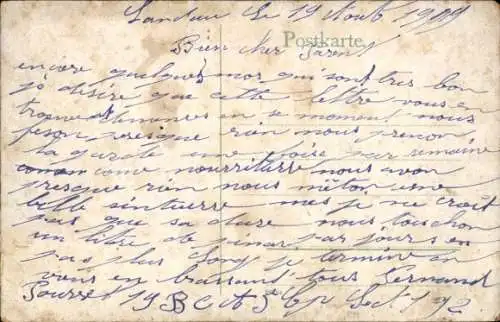 Landau le 19 Aout 1919
Bien cher Parent
Postkarte.
encore quelques mot qui sont tres bon
je désire que cette lettre vous en
trouve en se moment nous
feson presque rien nous prenon
la garde une fois par semaine
come nourriture nous avon
presque rien nous meton une
belle sinturre mes je ne croit
pas que sa dure nous touchon
un litre de pinar par jours
pas plus long je termine en
vous en brassant tous Fernand
19 B C A 5